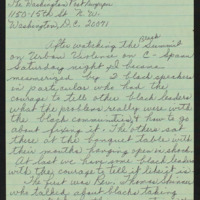 The Washington Post Newspaper
1150 - 15th St. N.W.
Washington, D.C. 20071
After watching the Summit
on Urban Violence on C-Span
Saturday night I became
mesmerized by 2 black speakers
in particular who had the
courage to tell other black leaders
what the problems really were with
the black communities & how to go
about fixing it. The others sat
there at the banquet table with
their mouths hanging open in shock.
At last we have some black leaders
with the courage to tell it like it is.
The first was Rev.
who talked about blacks taking